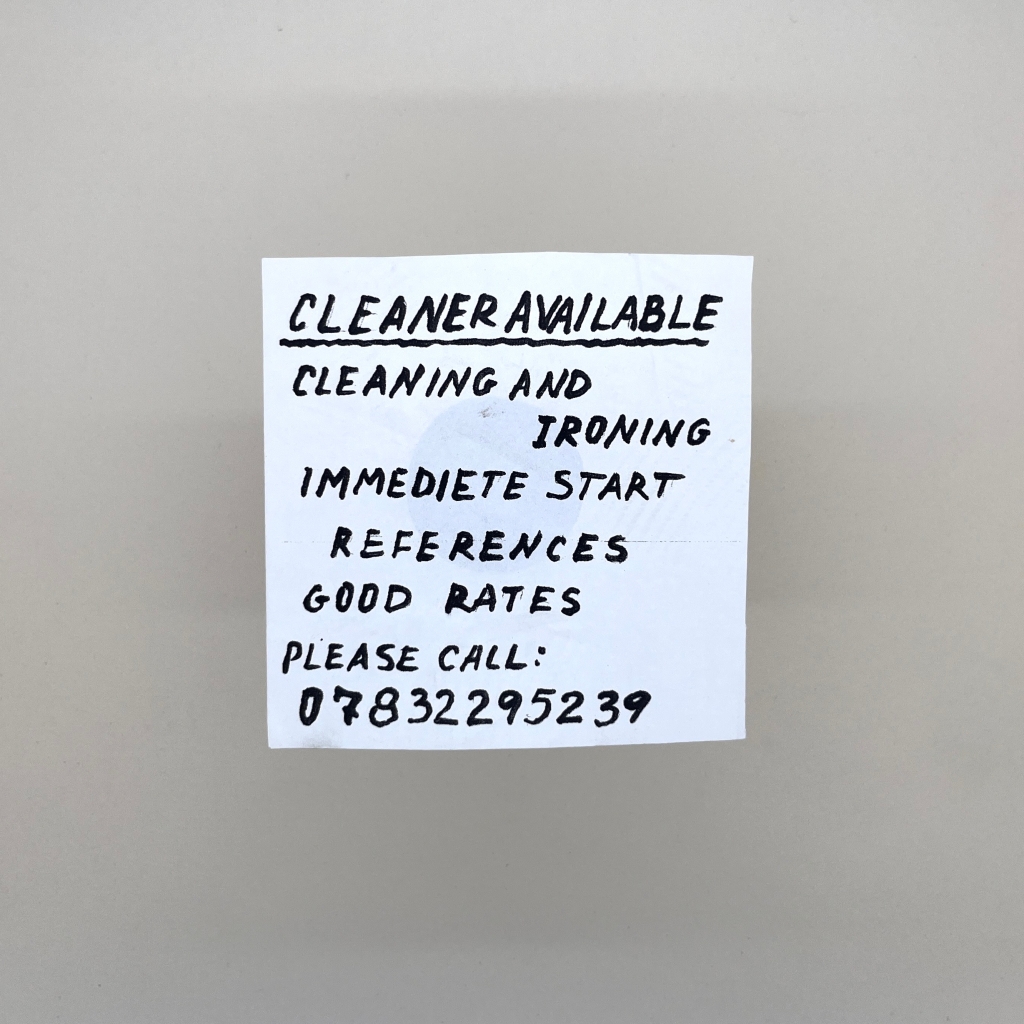 CLEANER AVAILABLE
CLEANING AND
IRONING
IMMEDIETE START
REFERENCES
GOOD RATES
PLEASE CALL:
07832295239